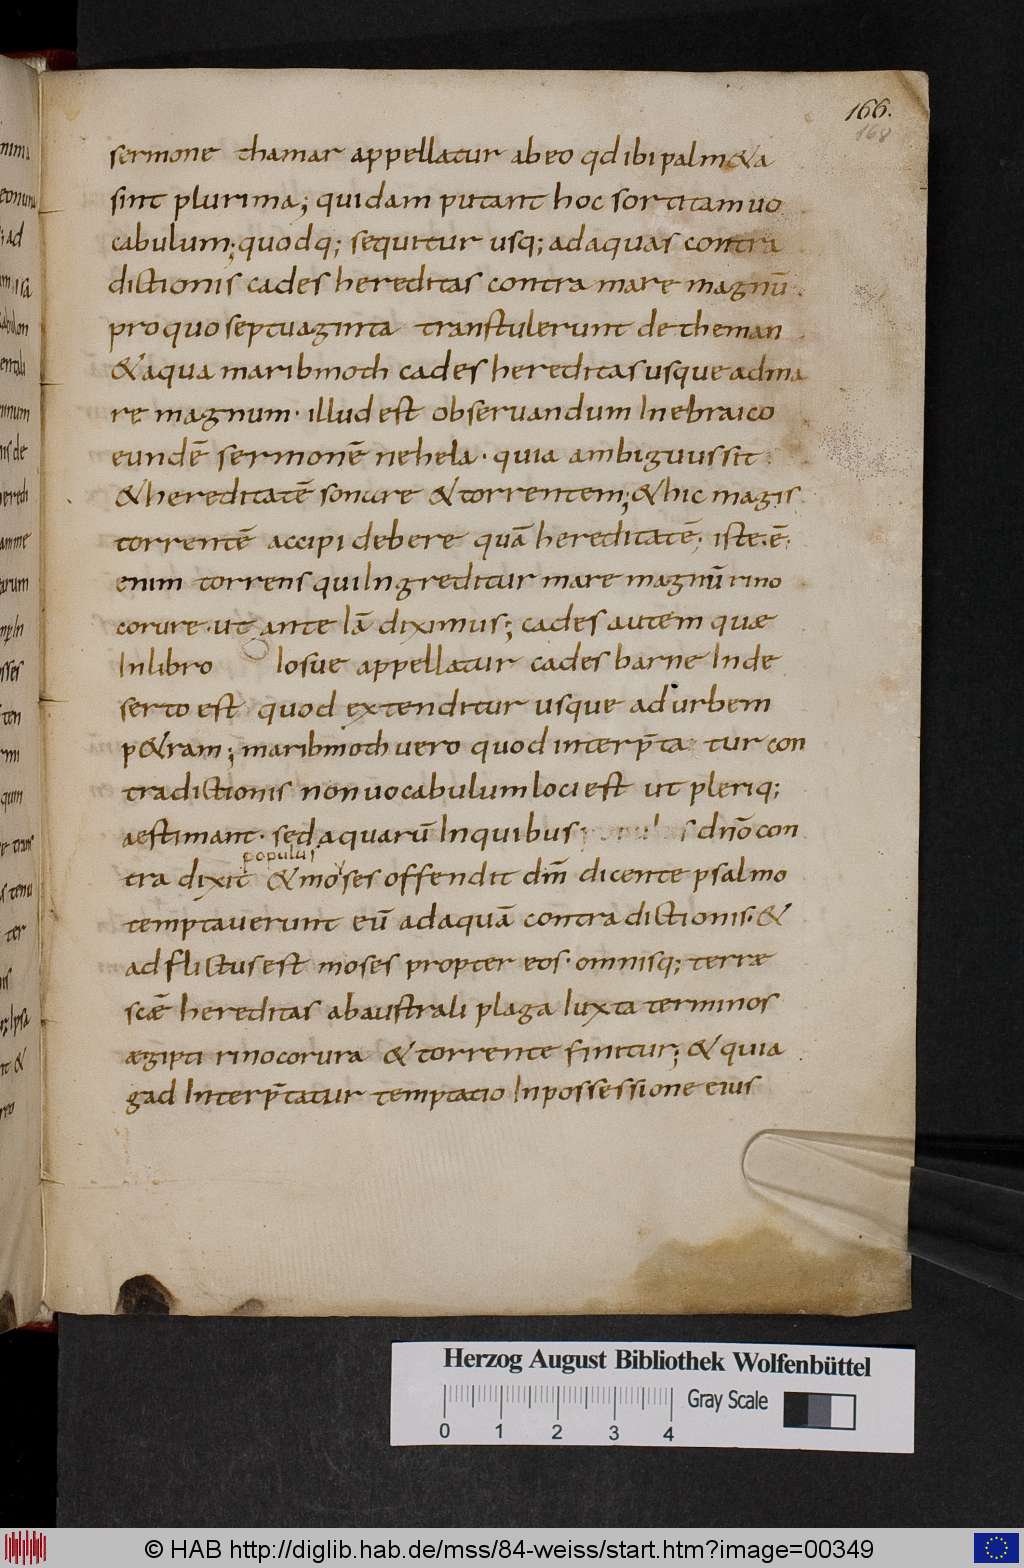 166.
168
sermone thamar appellatur abeo qd ibi palm&a
sint plurima; quidam putant hoc sortitam uo
cabulum; quodq; sequitur usq; adaquas contra
dictionis cades hereditas contra mare magnū.
pro quo septuaginta transtulerunt de theman
& aqua maribmoth cades hereditas usque adma
re magnum· illud est observandum In ebraico
eundē sermonē nehela· quia ambiguus sit
& hereditatē sonare & torrentem; & hic magis
torrentē accipi debere quā hereditatē; iste·ē·
enim torrens qui Ingreditur mare magnū rino
corure· ut ante Iā diximus; cades autem quæ
In libro Iosue appellatur cades barne In de
serto est quod extenditur usque ad urbem
p&ram; maribmoth uero quod interp̄ta tur con
tradictionis non uocabulum loci est ut pleriq;
aestimant· sed aquarū In quibus populus dn̄o con
populus
tra dixit & moyses offendit dm̄ dicente psalmo
temptauerunt eū ad aquā contradictionis· &
adflictus est moses propter eos· omnisq; terræ
scǣ hereditas ab australi plaga Iuxta terminos
ægipti rinocorura & torrente finitur; & quia
gad Interp̄tatur temptatio In possessione eius
Herzog August Bibliothek Wolfenbüttel
Gray Scale
0 1 2 3 4
© HAB http://diglib.hab.de/mss/84-weiss/start.htm?image=00349